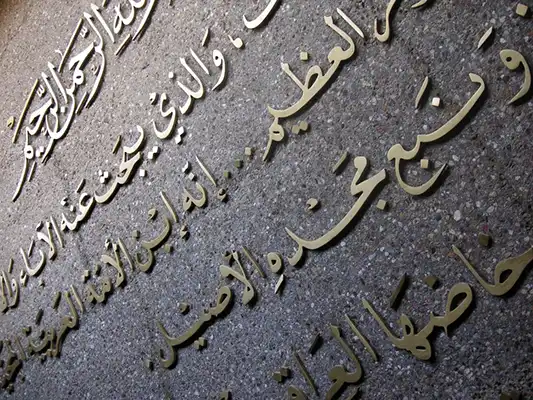 الله الرحمن الرحيم
وَالذي يبحث عنه الآباء
العظيم ... إنه ابن الأمة العربية
ونبع مجده الأصيل
العراق